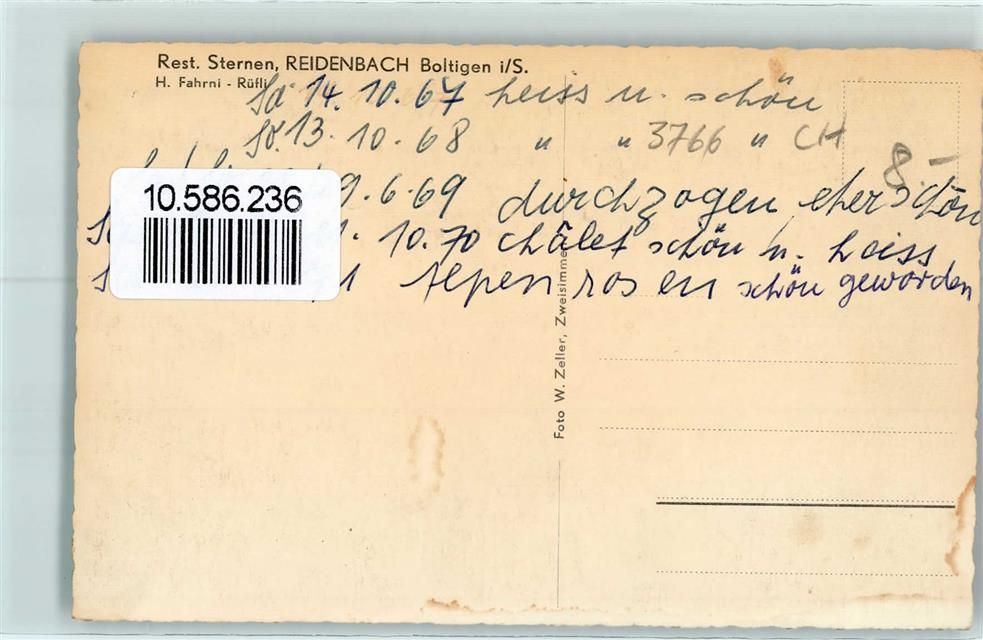 Rest. Sternen, REIDENBACH Boltigen i/S.
H. Fahrni - Rüfli
Sa 14. 10. 67 heiss u. schön
So. 13. 10. 68 " " 3766 " CH
8.-
9. 6. 69 durchzogen eher schön
10.586.236
10. 70 châlet schön u. heiss
Alpenrosen schön geworden
Foto W. Zeller, Zweisimmen